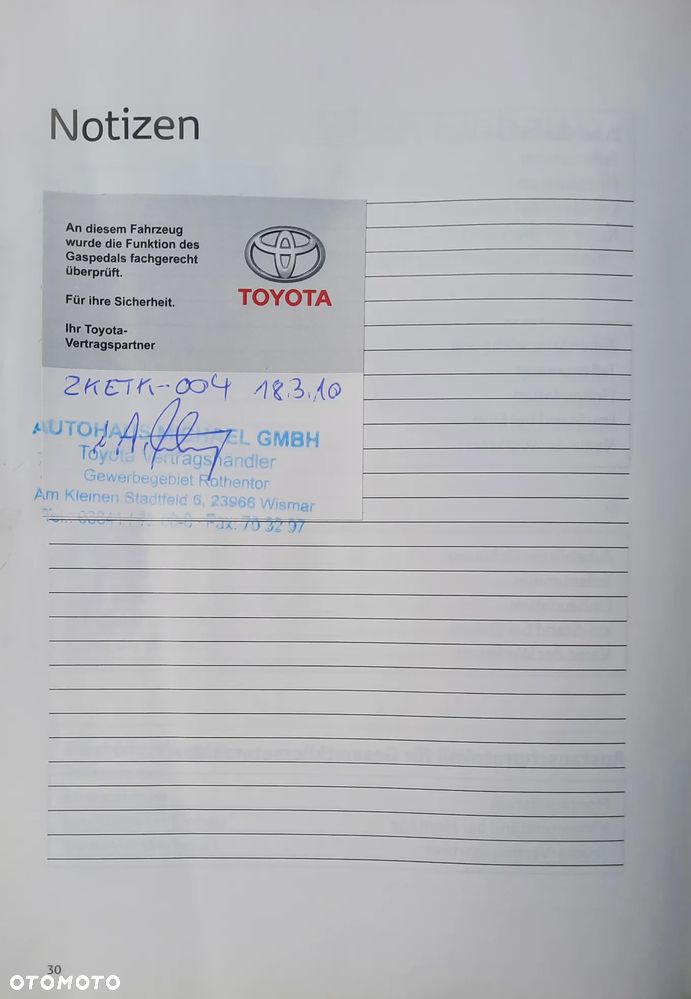 Notizen
An diesem Fahrzeug
wurde die Funktion des
Gaspedals fachgerecht
überprüft.
Für ihre Sicherheit.
Ihr Toyota-
Vertragspartner
TOYOTA
2KETK-004 18.3.10
AUTOHAUS MICHAEL GMBH
Toyota Vertragshändler
Gewerbegebiet Rothentor
Am Kleinen Stadtfeld 6, 23966 Wismar
Fax: 70 32 97
30
OTOMOTO